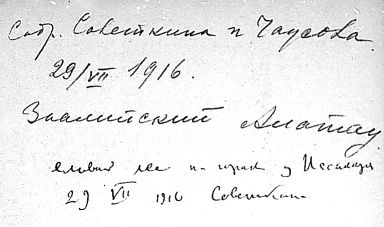 Собр. Советкина и Чадова
29/VII 1916.
Заилийский Алатау
еловый лес на
29 VII 1916 Советкина